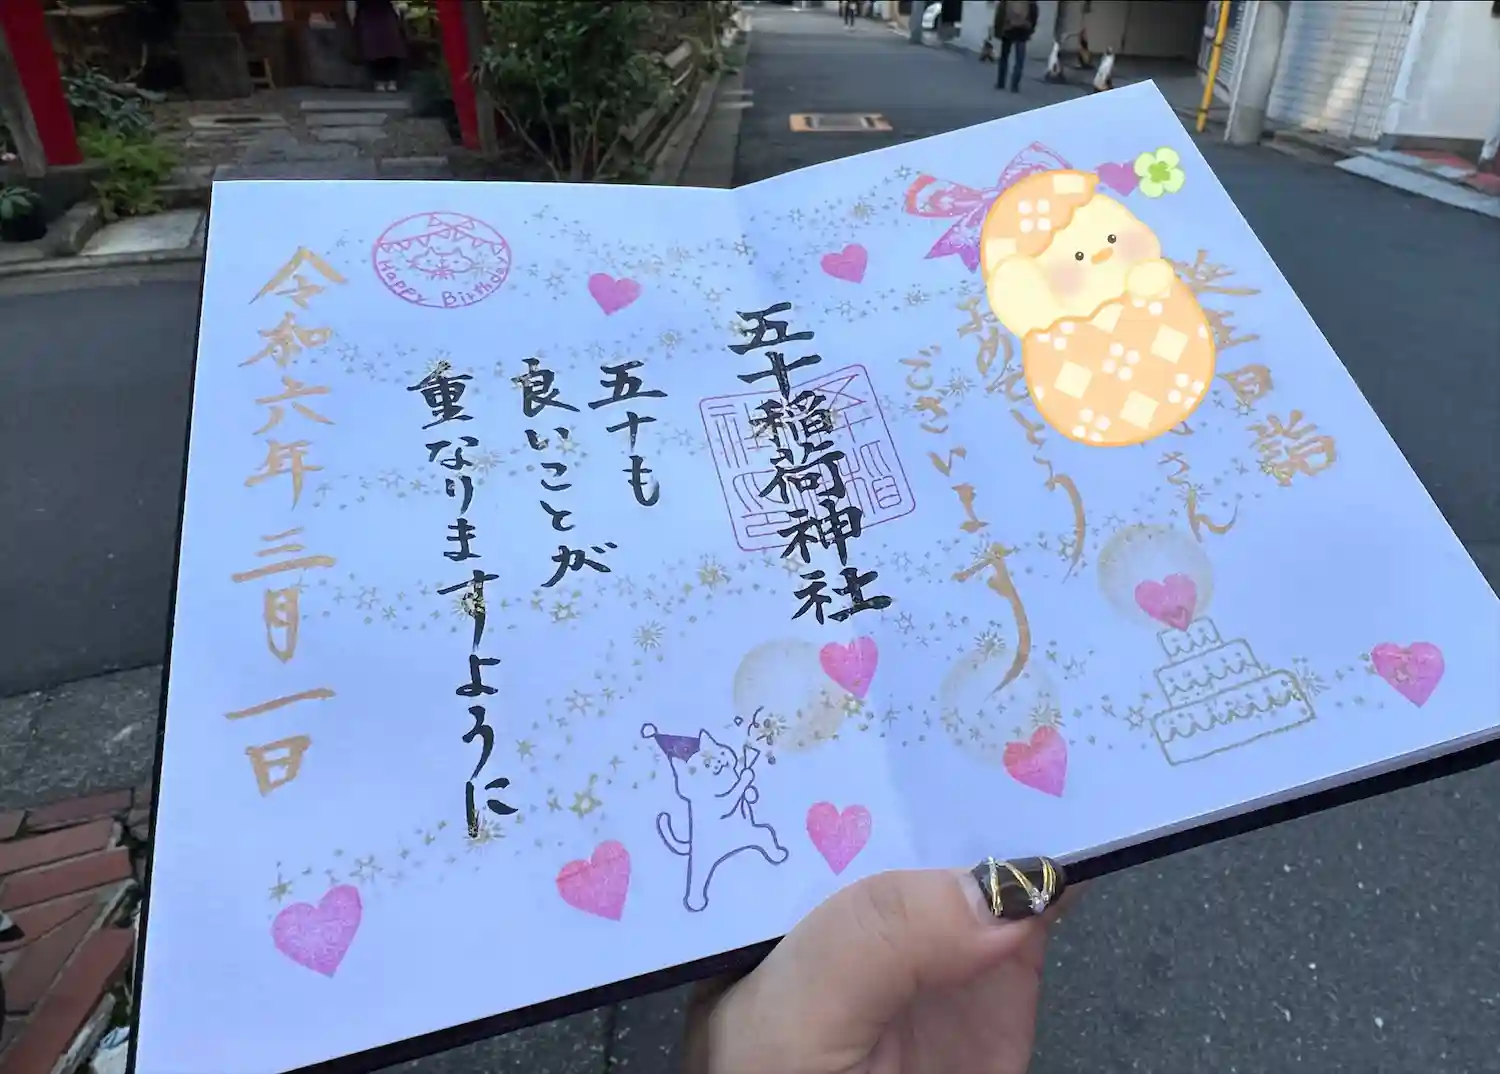 誕生日詣
さん
おめでとう
ございます
五十稲荷神社
五十も
良いことが
重なりますように
令和六年三月一日
Happy Birthday